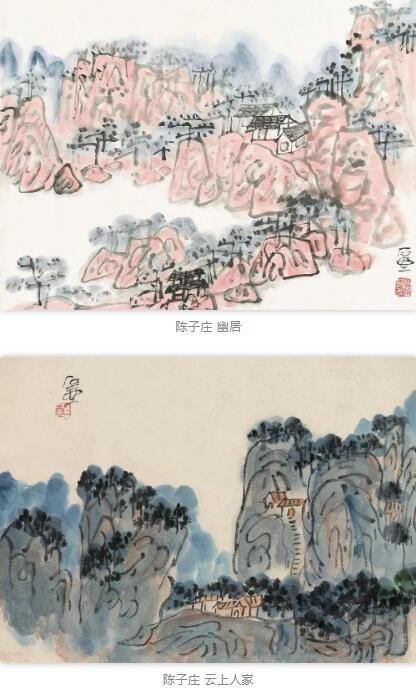 陈子庄 幽居
陈子庄 云上人家